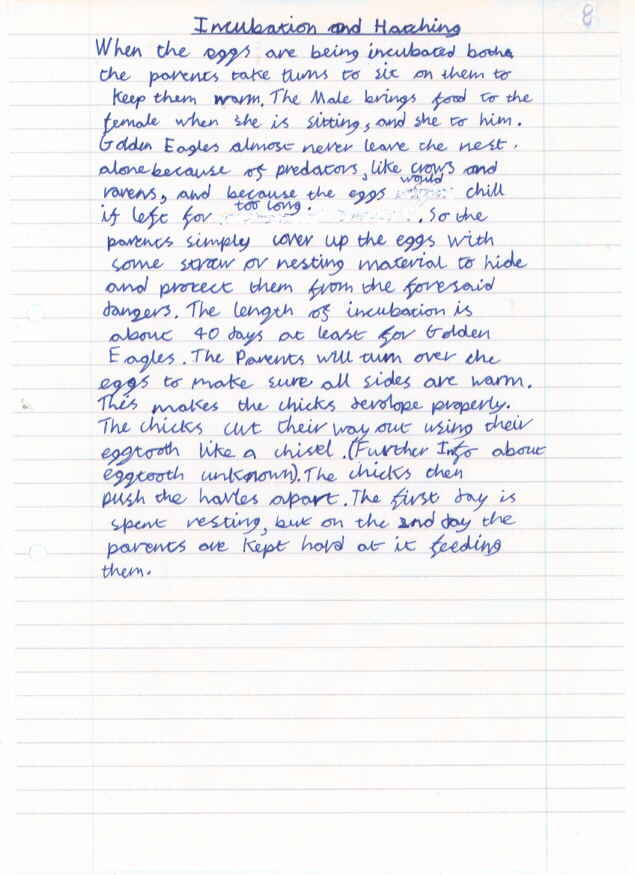 8
Incubation and Hatching
When the eggs are being incubated both
the parents take turns to sit on them to
keep them warm. The Male brings food to the
female when she is sitting, and she to him.
Golden Eagles almost never leave the nest
alone because of predators, like crows and
ravens, and because the eggs would chill
if left for too long. So the
parents simply cover up the eggs with
some straw or nesting material to hide
and protect them from the foresaid
dangers. The length of incubation is
about 40 days at least for Golden
Eagles. The Parents will turn over the
eggs to make sure all sides are warm.
This makes the chicks devolope properly.
The chicks cut their way out using their
eggtooth like a chisel. (Further Info about
eggtooth unknown). The chicks then
push the havles apart. The first day is
spent resting, but on the 2nd day the
parents are kept hard at it feeding
them.